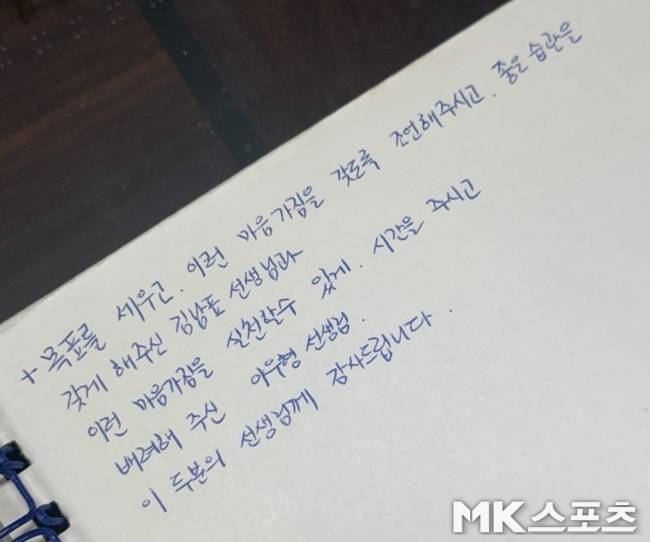 + 목표를 세우고. 이런 마음가짐을 갖도록 조언해주시고. 좋은 습관을
갖게 해주신 김남표 선생님과
이런 마음가짐을 실천할수 있게. 시간을 주시고
배려해 주신 이우형 선생님.
이 두분의 선생님께 감사드립니다.
MK스포츠